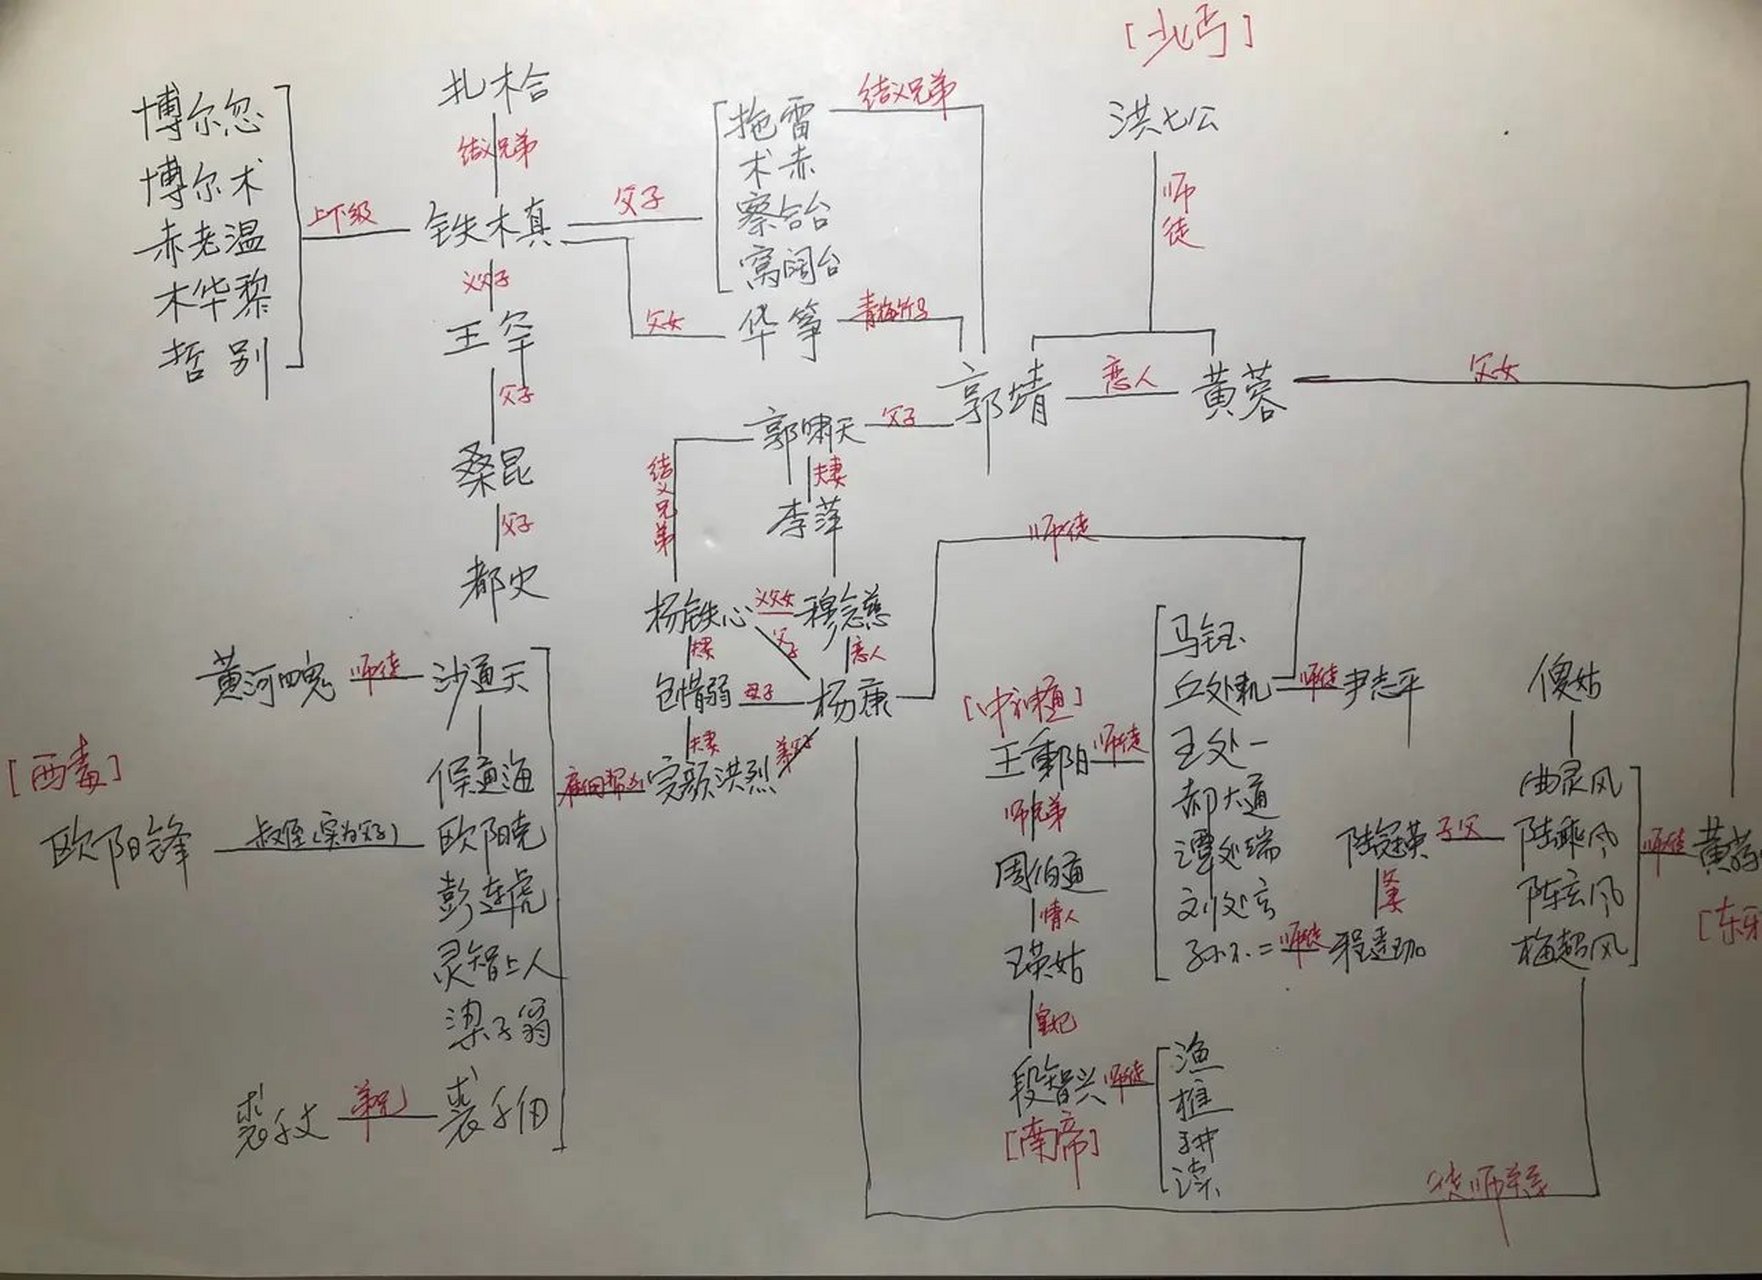 [北丐]
洪七公
师徒
博尔忽
博尔术
赤老温
木华黎
哲别
上下级
扎木合
结义兄弟
铁木真
义父子
王罕
父子
桑昆
父子
都史
父子
拖雷
术赤
察合台
窝阔台
结义兄弟
父女
华筝
青梅竹马
郭靖
恋人
黄蓉
父女
郭啸天
父子
夫妻
李萍
结义兄弟
杨铁心
义父女
穆念慈
父子
夫妻
恋人
包惜弱
母子
杨康
夫妻
完颜洪烈
师徒
黄河四鬼
师徒
沙通天
侯通海
[西毒]
欧阳锋
叔侄(实为父子)
欧阳克
彭连虎
灵智上人
梁子翁
裘千丈
弟兄
裘千仞
[中神通]
王重阳
师徒
马钰
丘处机
师徒
尹志平
王处一
郝大通
谭处端
刘处玄
孙不二
师徒
程遥迦
师兄弟
周伯通
情人
瑛姑
皇妃
段智兴
师徒
[南帝]
渔
樵
耕
读
傻姑
曲灵风
陆冠英
子父
陆乘风
夫妻
陈玄风
梅超风
师徒
黄药
[东邪